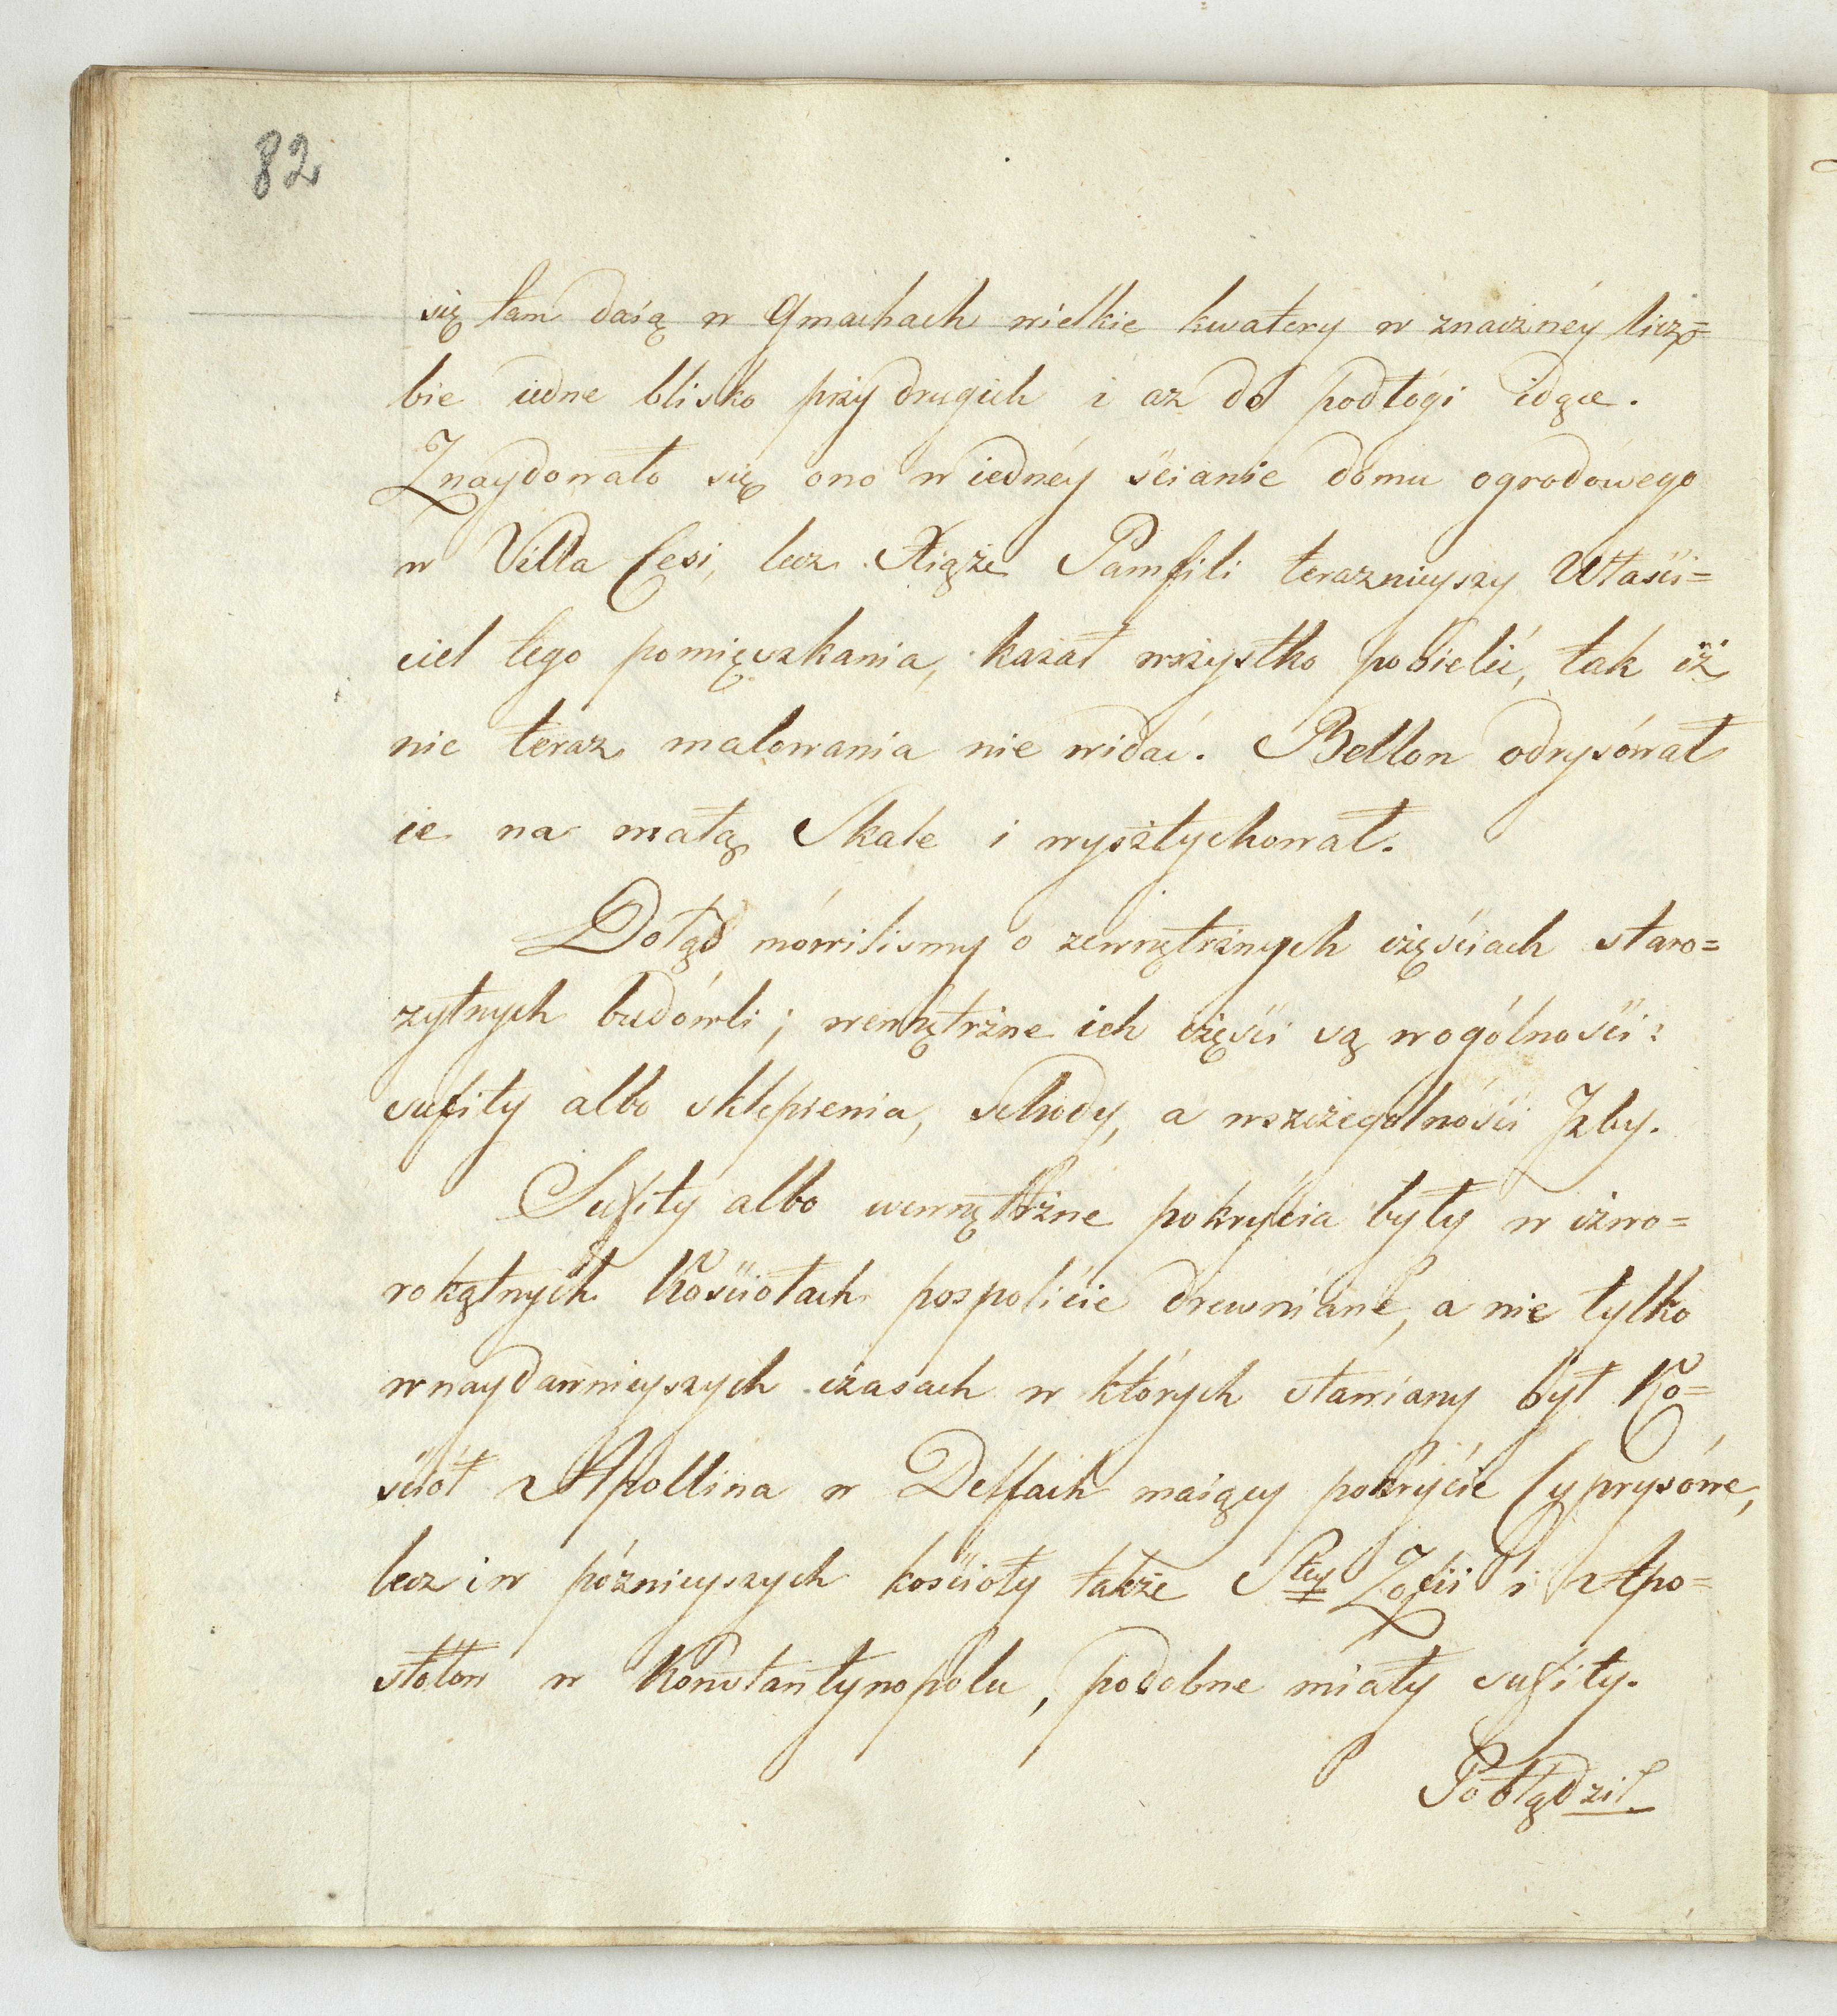 82
się tam daią w Gmachach wielkie kwatery w znacznéy licz=
bie iedne blisko przy drugich i aż do podłogi idące.
Znaydowało się ono w iednéy ścianie domu ogrodowego
w Villa Cesi, lecz Xiąże Pamfili teraznieyszy Właści=
ciel tego pomięszkania, kazał wszystko pobielić, tak iż
nic teraz malowania nie widać. Bellon odrysówał
ie na małą Skale i wysztychował.
Dotąd mówilismy o zewnętrznych częściach staro=
zytnych budówli; wewnętrzne ich części są wogólności:
sufity albo sklepienia, schody, a wszczegolności Izby.
Sufity albo wewnętrzne pokrycia były w czwo=
rokątnych Kościołach pospolicie drewniane, a nie tylko
wnaydawnieyszych czasach w których stawiany był Ko=
ściół Apollina w Delfach maiący pokrycie Cyprysówe,
lecz i w póznieyszych kościoły także Stey Zofii i Apo=
stołow w Konstantynopolu, podobne miały sufity.
Pobłądził